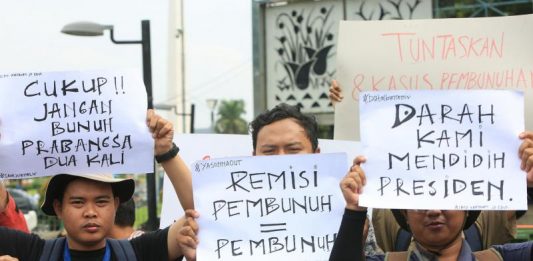 CUKUP !!
JANGAN
BUNUH
PRABANGSA
DUA KALI
#YASONNAOUT
REMISI
PEMBUNUH
=
PEMBUNUH
TUNTASKAN
8 KASUS PEMBUNUHA
DARAH
KAMI
MENDIDIH
PRESIDEN.